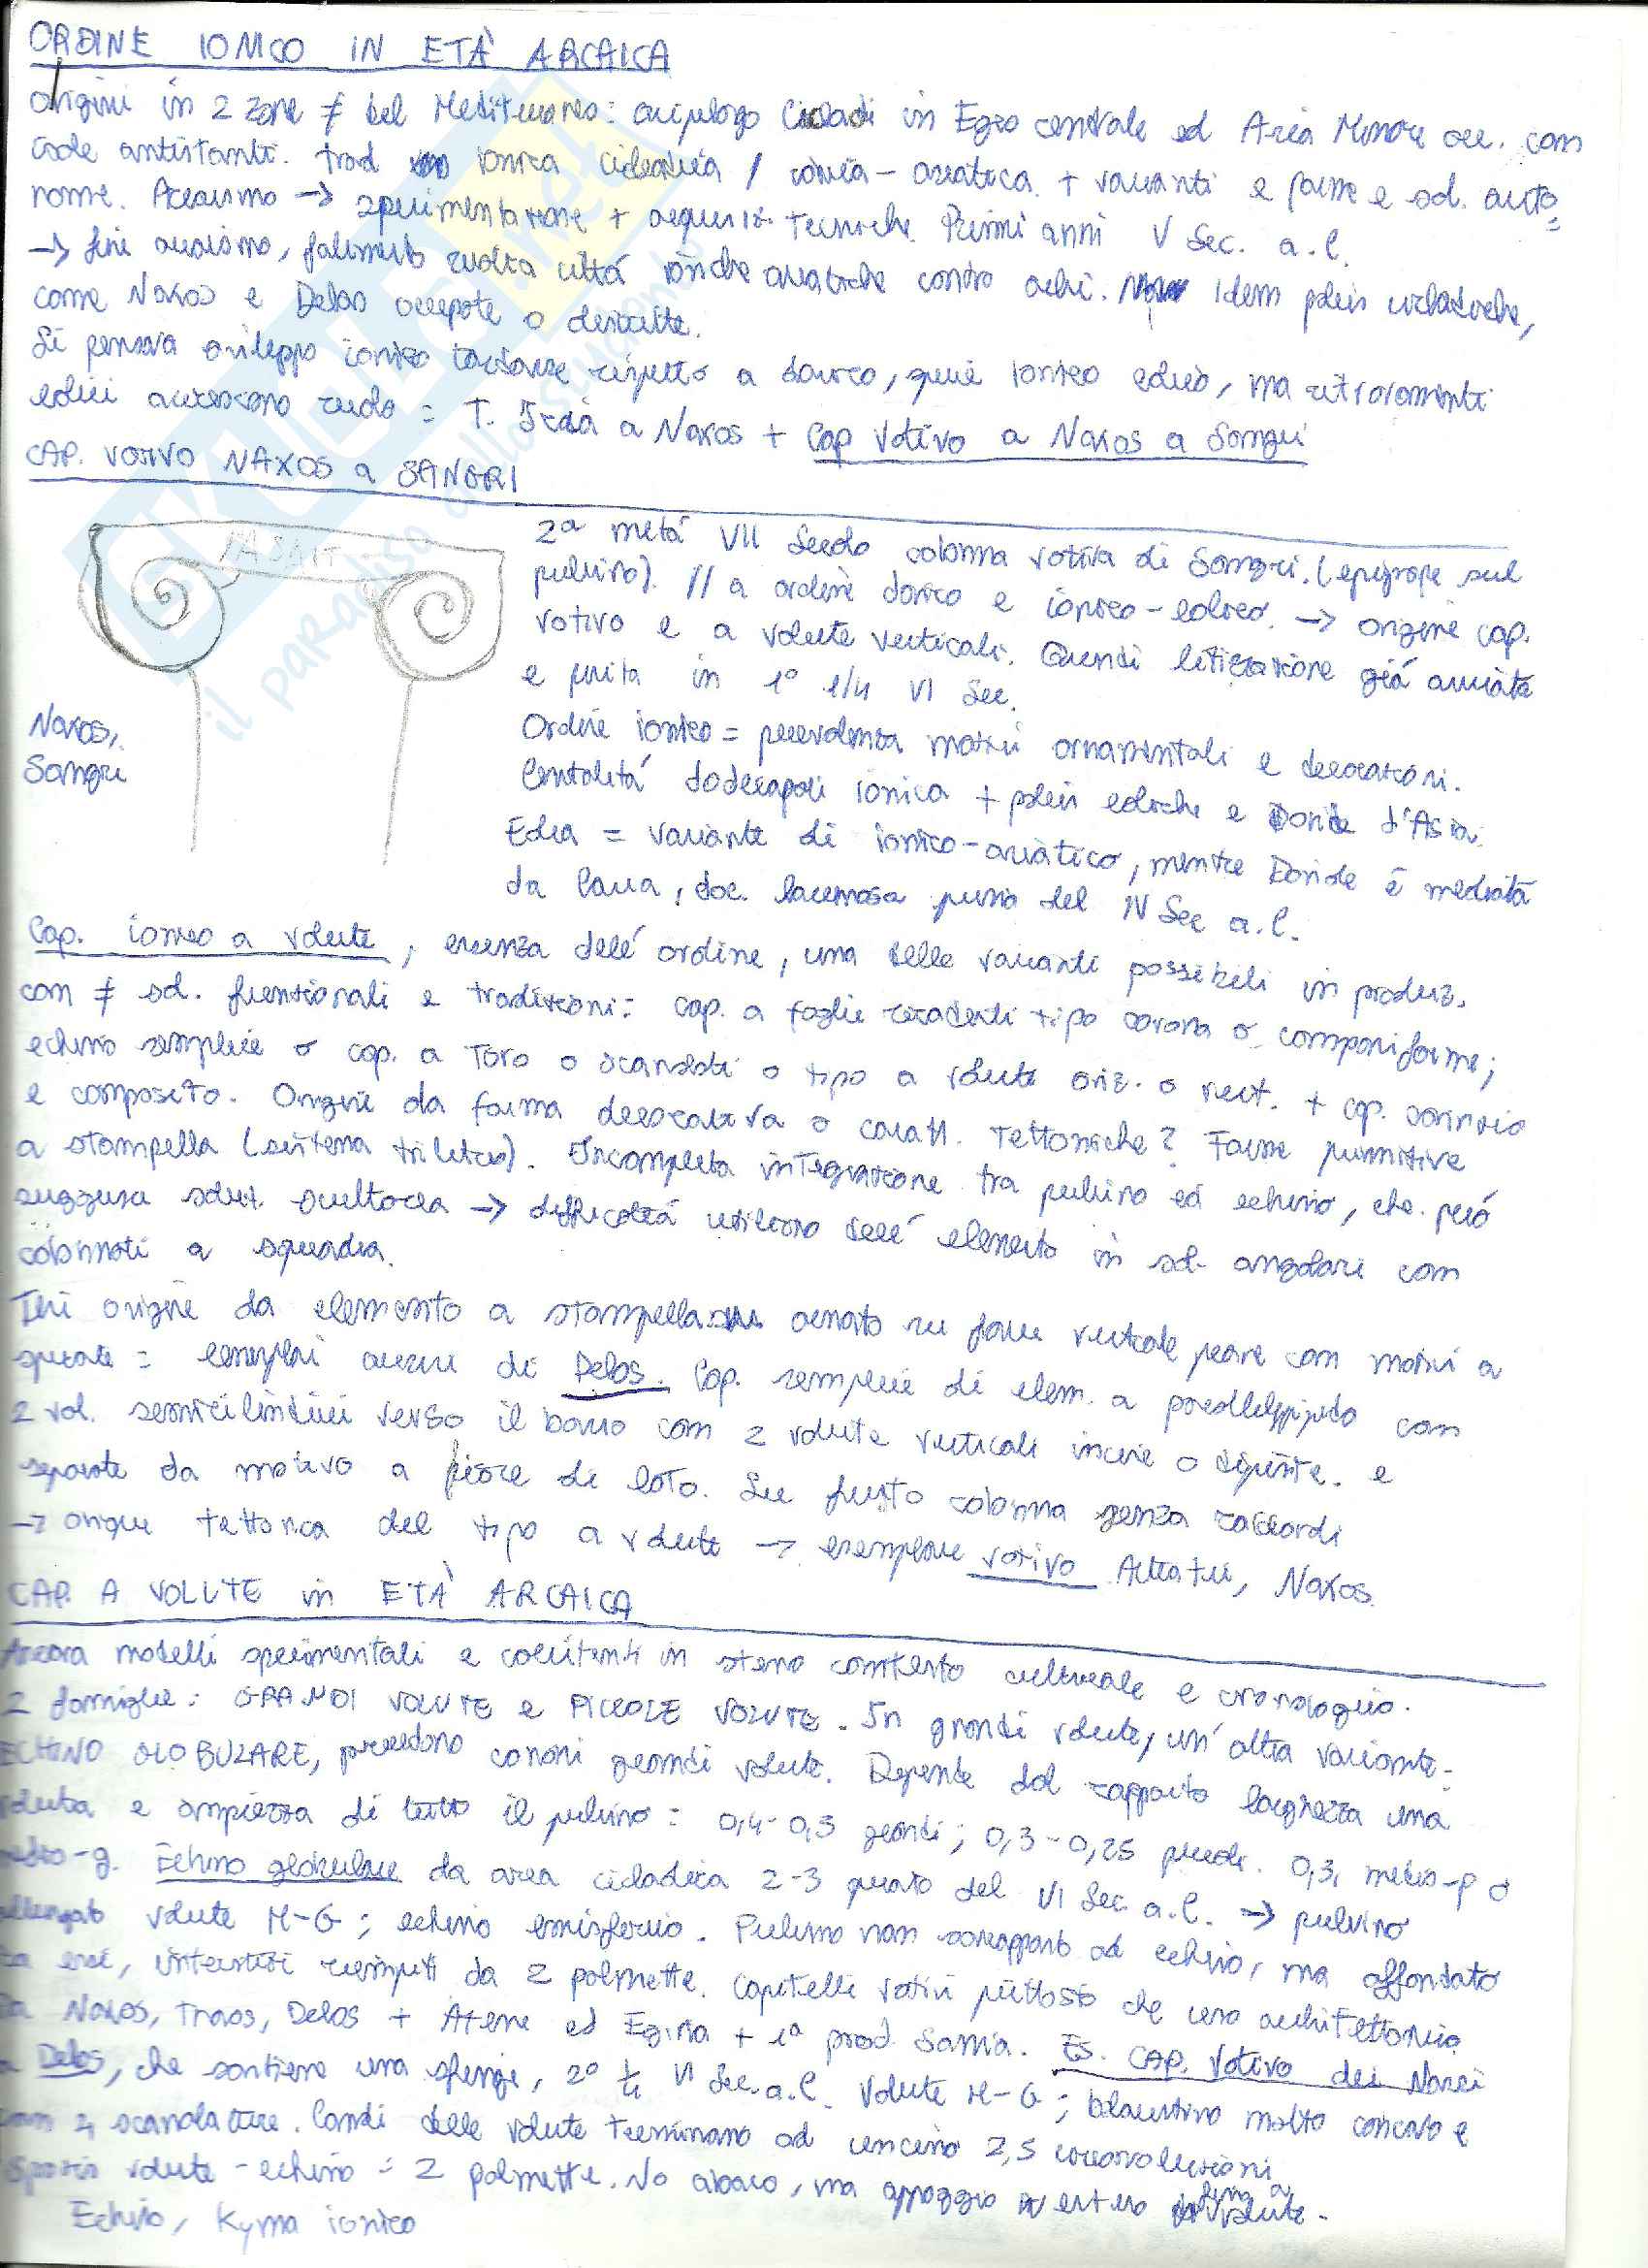 ORDINE IONICO IN ETÀ ARCAICA
Origini in 2 zone ≠ del Mediterraneo: arcipelago Cicladi in Egeo centrale ed Asia Minore occ. con
isole antistanti. trad ionica cicladica / ionica-asiatica. + varianti e forme e sol. auto=
nome. Arcaismo → sperimentazione + acquisiz. tecniche. Primi anni V Sec. a.C.
→ fine arcaismo, fallimento rivolta città ioniche asiatiche contro achei. Idem poleis cicladiche,
come Naxos e Delos occupate o distrutte.
Si pensava sviluppo ionico tardivo rispetto a dorico, quindi ionico eolico, ma ritrovamenti
edifici accrescono ruolo = T. Iria a Naxos + Cap votivo a Naxos a Sangri
CAP. VOTIVO NAXOS a SANGRI
Naxos,
Sangri
2ª metà VII Secolo colonna votiva di Sangri. (epigrafe sul
pulvino). // a ordine dorico e ionico-eolico. → origine cap.
votivo e a volute verticali. Quindi litizzazione già avviata
e finita in 1° 1/4 VI Sec.
Ordine ionico = prevalenza motivi ornamentali e decorazioni.
Centralità dodecapoli ionica + poleis eoliche e Doride d'Asia.
Eolia = variante di ionico-asiatico, mentre Doride è mediata
da Caria, doc. lacunosa prima del IV Sec a.C.
Cap. ionico a volute, essenza dell'ordine, una delle varianti possibili in produz.
con ≠ sol. funzionali e tradizioni: cap. a foglie ricadenti tipo corona o campaniforme;
echino semplice o cap. a Toro o scanalati o tipo a volute oriz. o vert. + cap. corinzio
e composito. Origine da forma decorativa o caratt. Tettoniche? Forme primitive
a stampella (sistema trilitico). Incompleta integrazione tra pulvino ed echino, che però
suggerisce soluz. scultorea → difficoltà utilizzo dell'elemento in sol. angolari con
colonnati a squadra.
Thi origine da elemento a stampella ornato su facce verticale piane con motivi a
spirale = esemplari arcaici di Delos. Cap. semplice di elem. a parallelepipedo con
2 vol. semicilindrici verso il basso con 2 volute verticali incise o dipinte e
separate da motivo a fiore di loto. Su fusto colonna senza raccordi
→ origine tettonica del tipo a volute → esemplare votivo, Naxos.
CAP. A VOLUTE in ETÀ ARCAICA
Ancora modelli sperimentali e coesistenti in stesso contesto culturale e cronologico.
2 famiglie: GRANDI VOLUTE e PICCOLE VOLUTE. In grandi volute, un'altra variante:
ECHINO GLOBULARE, precedono canoni grandi volute. Dipende dal rapporto larghezza una
voluta e ampiezza di tutto il pulvino: 0,4-0,3 grandi; 0,3-0,25 piccole. 0,3, medio-p o
medio-g. Echino globulare da area cicladica 2-3 quarto del VI Sec. a.C. → pulvino
allungato volute M-G; echino emisferico. Pulvino non sovrapposto ad echino, ma affondato
tra essi, interstizi riempiti da 2 palmette. Capitelli votivi piuttosto che uso architettonico
Da Naxos, Thasos, Delos + Atene ed Egina + 1ª prod Samia. ES. CAP. votivo dei Nassi
a Delos, che sostiene una sfinge, 2° 1/4 VI Sec. a.C. Volute M-G; balaustino molto concavo e
con 4 scanalature. Canali delle volute terminano ad uncino 2,5 circonvoluzioni.
Spazio volute-echino = 2 palmette. No abaco, ma appoggio esteso fino a volute.
Echino, Kyma ionico
il paradiso dello studente